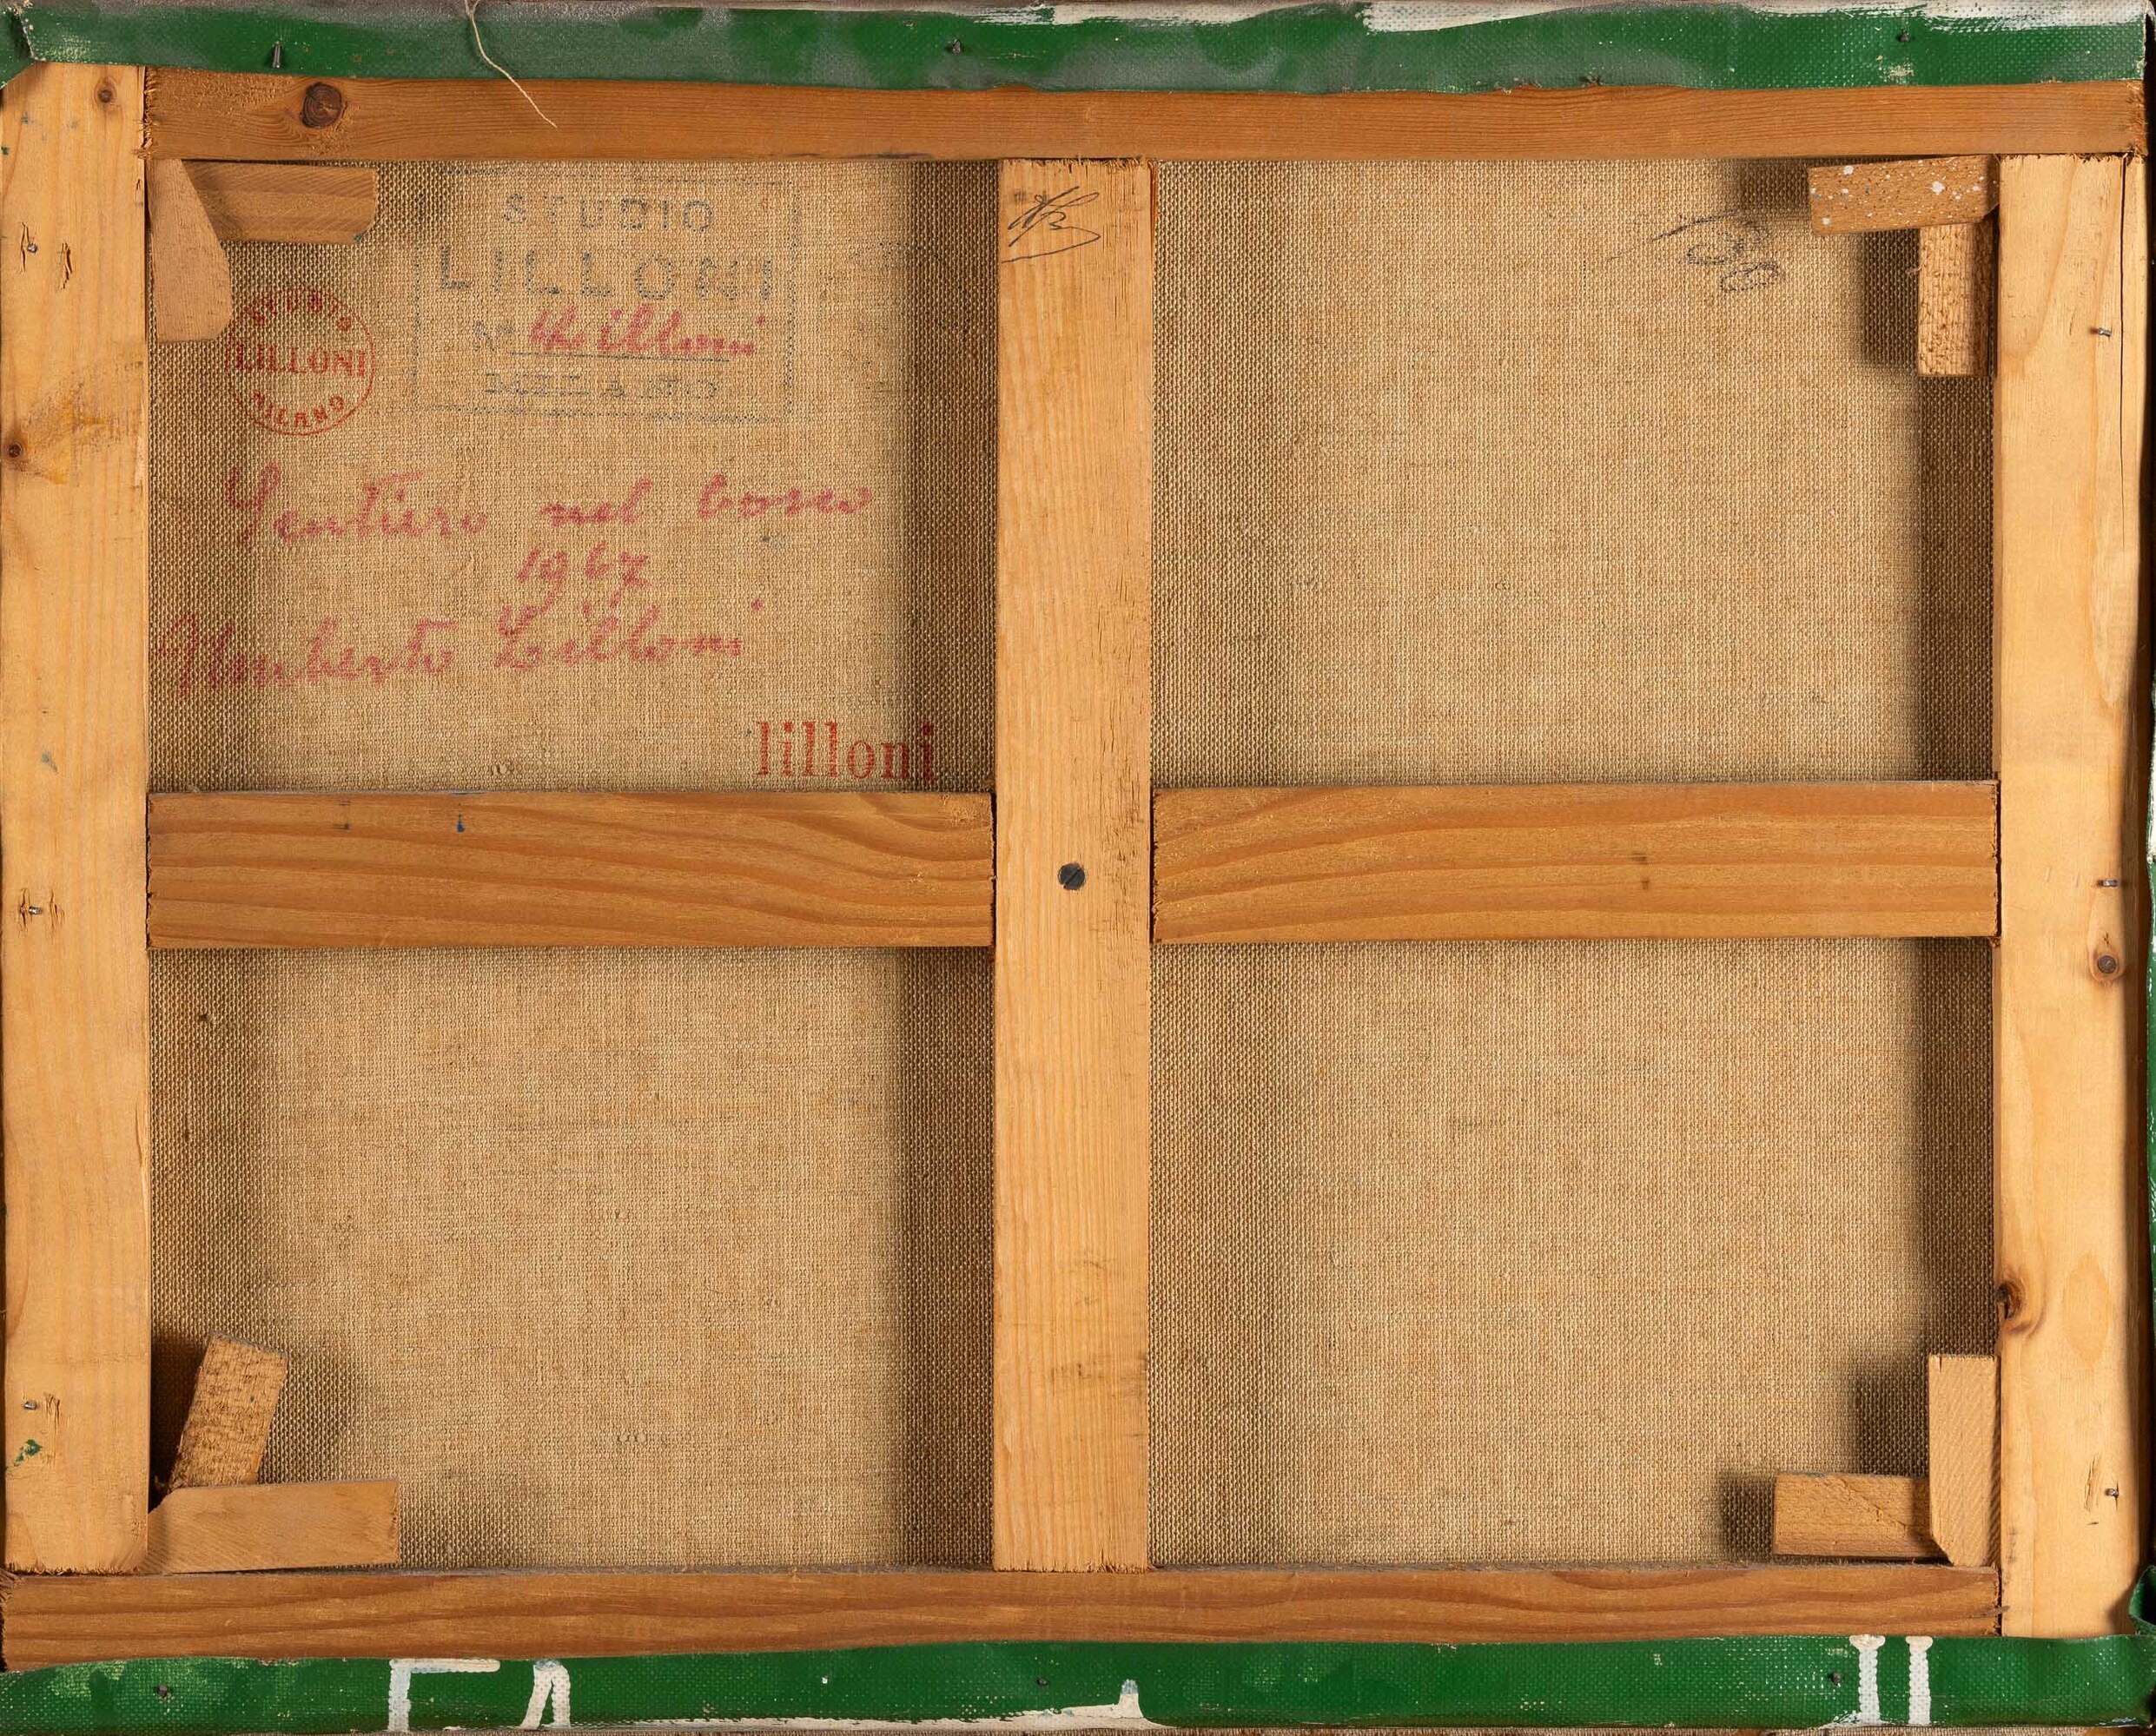 STUDIO
LILLONI
Nº Lilloni
STUDIO
LILLONI
MILANO
Sentiero nel bosco
1967
Umberto Lilloni
lilloni